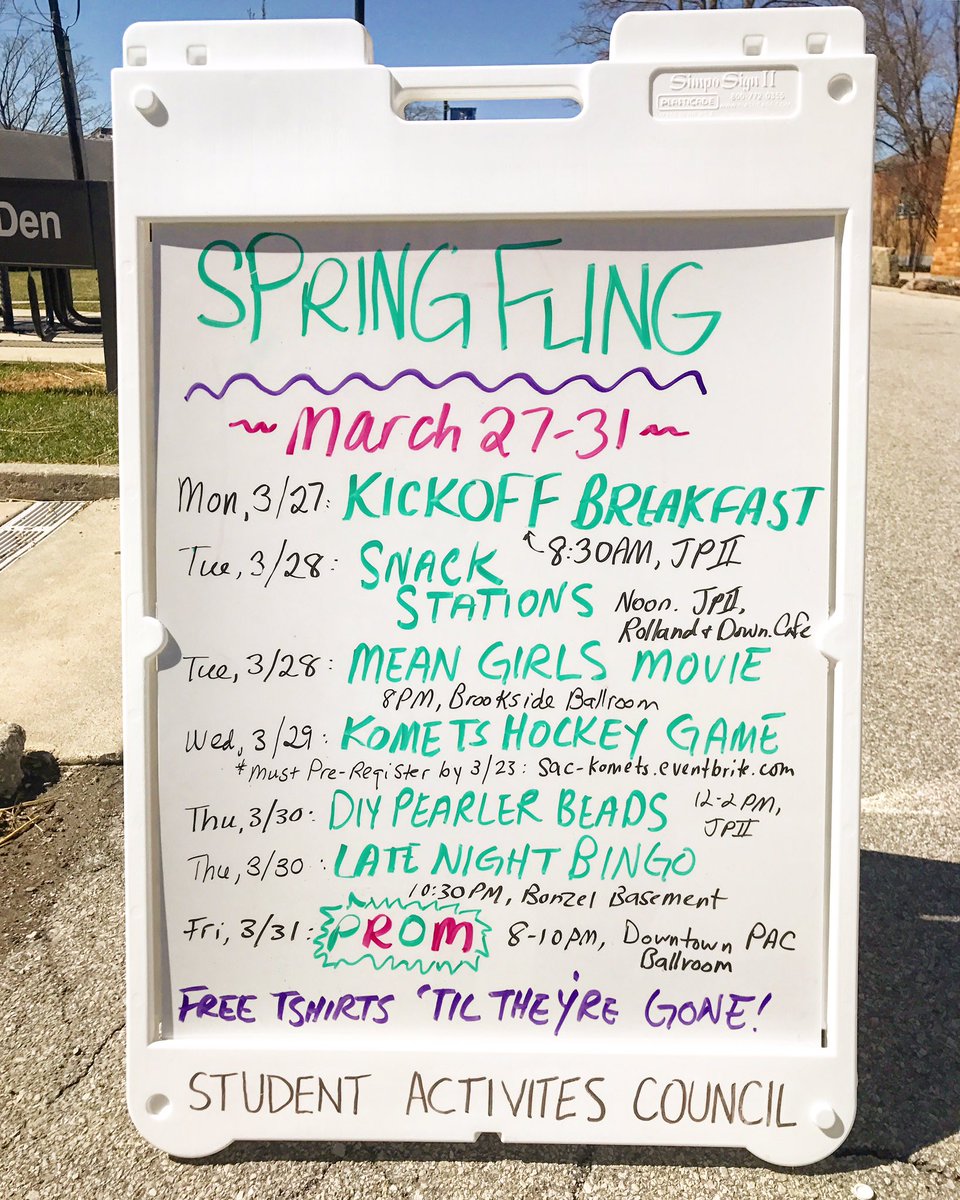 SimpoSign II
PLASTICADE 800-772-0355
Den
SPRING FLING
~ March 27-31 ~
Mon, 3/27: KICKOFF BREAKFAST
8:30AM, JPII
Tue, 3/28: SNACK
STATIONS Noon. JPII,
Rolland + Down. Cafe
Tue, 3/28: MEAN GIRLS MOVIE
8PM, Brookside Ballroom
Wed, 3/29: KOMETS HOCKEY GAME
*Must Pre-Register by 3/23: sac-komets.eventbrite.com
Thu, 3/30: DIY PEARLER BEADS 12-2PM,
JPII
Thu, 3/30: LATE NIGHT BINGO
10:30PM, Bonzel Basement
Fri, 3/31: PROM 8-10PM, Downtown PAC
Ballroom
FREE TSHIRTS 'TIL THEY'RE GONE!
STUDENT ACTIVITES COUNCIL